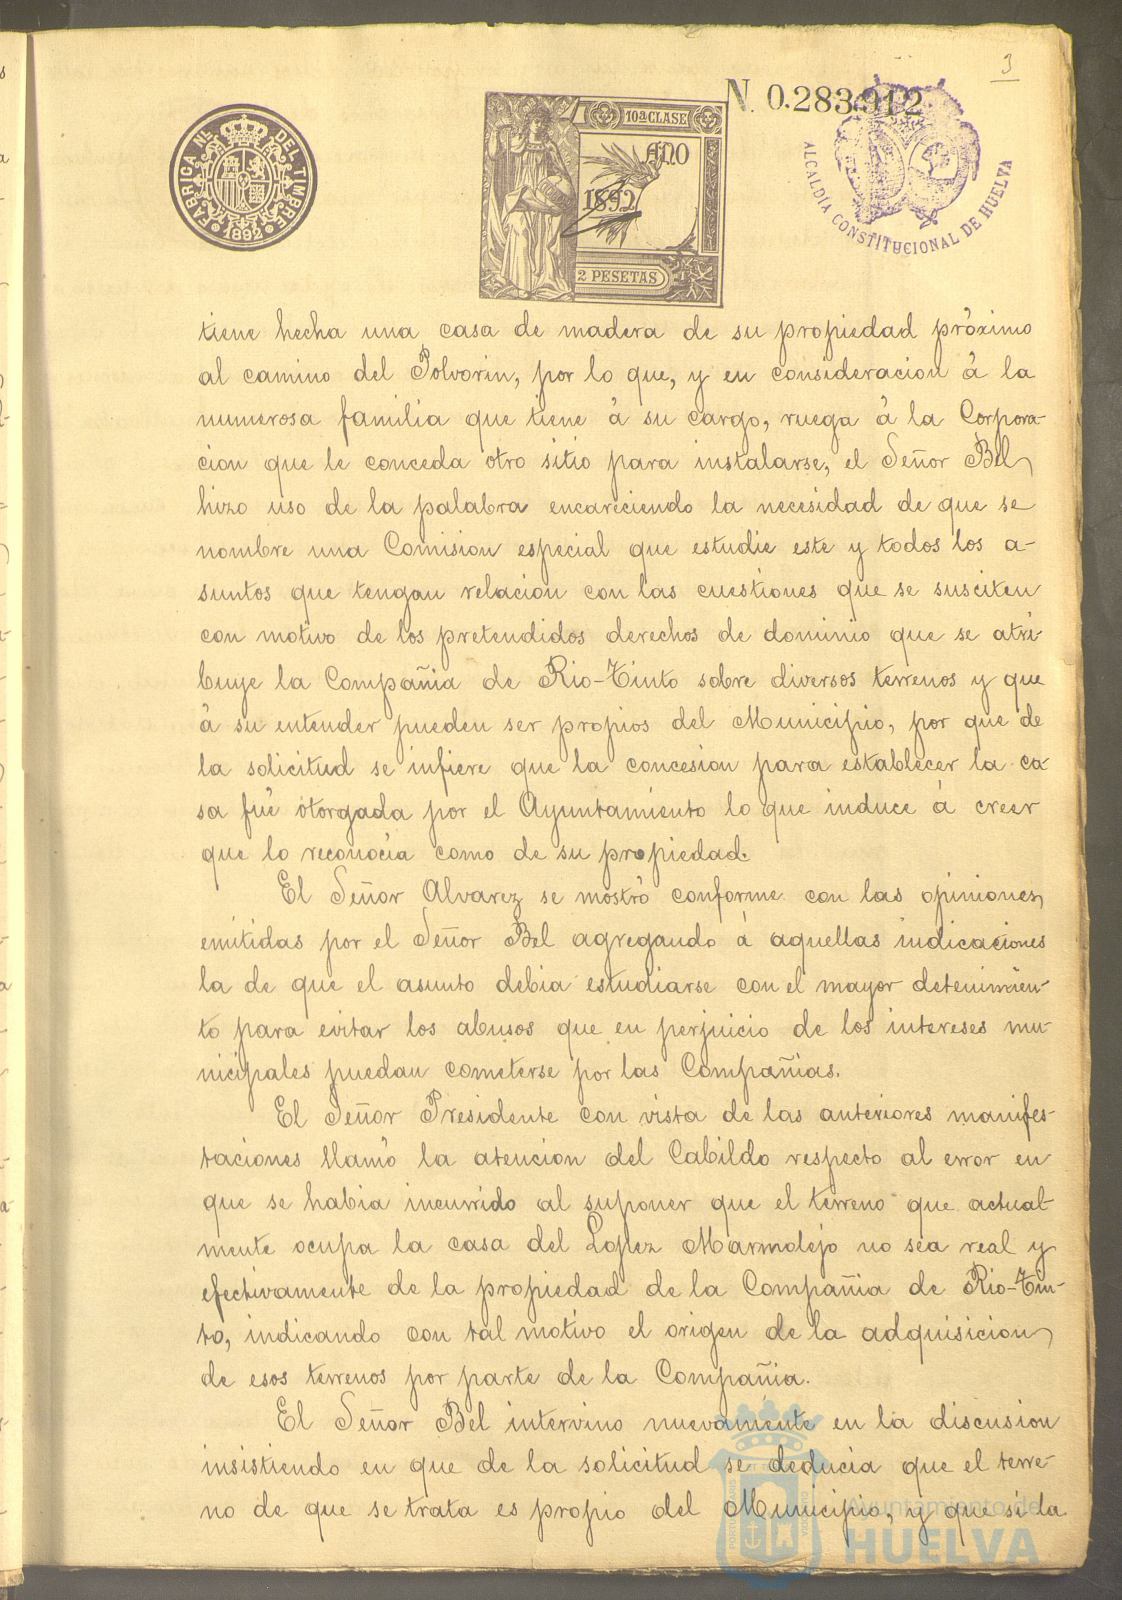 3
N. 0.283.912
FABRICA N.al DEL TIMBRE
1892
10ª CLASE
AÑO
1892
2 PESETAS
ALCALDIA CONSTITUCIONAL DE HUELVA
tiene hecha una casa de madera de su propiedad próximo
al camino del Polvorin, por lo que, y en consideracion á la
numerosa familia que tiene á su cargo, ruega á la Corpora-
cion que le conceda otro sitio para instalarse, el Señor Bel
hizo uso de la palabra encareciendo la necesidad de que se
nombre una Comision especial que estudie este y todos los a-
suntos que tengan relacion con las cuestiones que se susciten
con motivo de los pretendidos derechos de dominio que se atri-
buye la Compañia de Rio-Tinto sobre diversos terrenos y que
á su entender pueden ser propios del Municipio, por que de
la solicitud se infiere que la concesion para establecer la ca-
sa fué otorgada por el Ayuntamiento lo que induce á creer
que lo reconocia como de su propiedad.
El Señor Alvarez se mostró conforme con las opiniones
emitidas por el Señor Bel agregando á aquellas indicaciones
la de que el asunto debia estudiarse con el mayor detenimien-
to para evitar los abusos que en perjuicio de los intereses mu-
nicipales puedan cometerse por las Compañias.
El Señor Presidente con vista de las anteriores manifes-
taciones llamó la atencion del Cabildo respecto al error en
que se habia incurrido al suponer que el terreno que actual-
mente ocupa la casa del Lopez Marmolejo no sea real y
efectivamente de la propiedad de la Compañia de Rio-Tin-
to, indicando con tal motivo el origen de la adquisicion
de esos terrenos por parte de la Compañia.
El Señor Bel intervino nuevamente en la discusion
insistiendo en que de la solicitud se deducia que el terre-
no de que se trata es propio del Municipio, y que si la
Ayuntamiento de
HUELVA